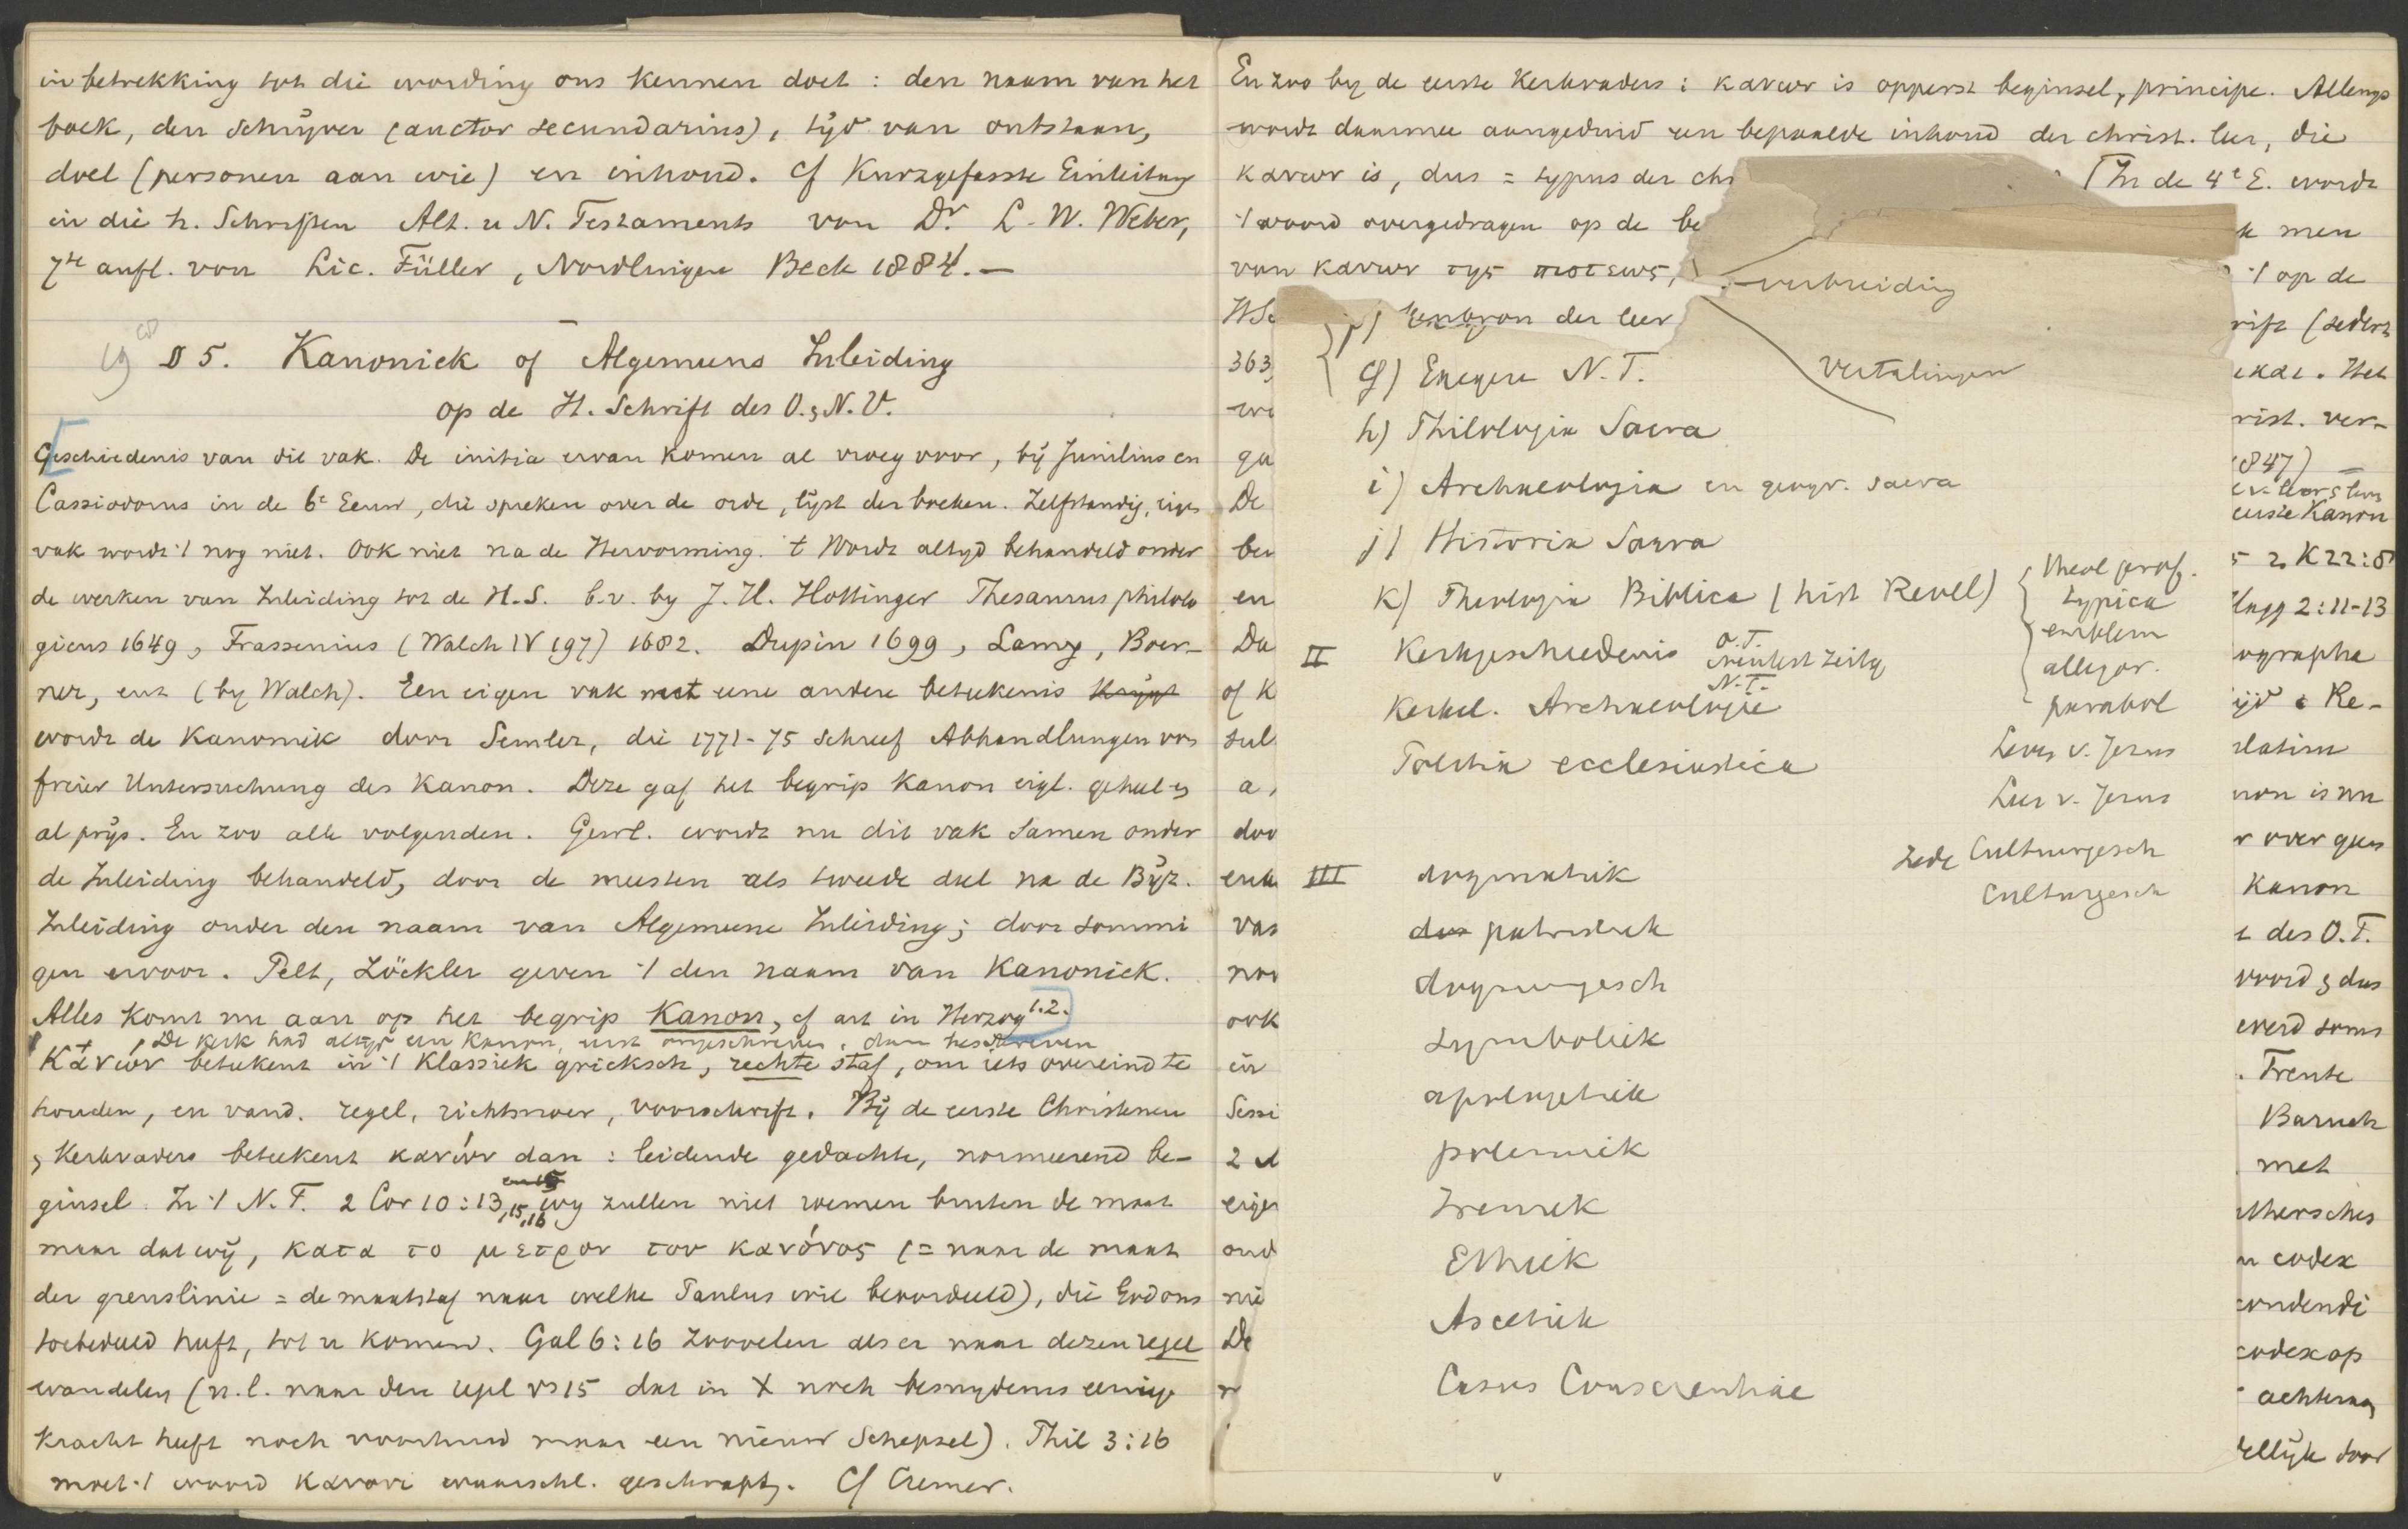 in betrekking tot die wording ons kennen doet: den naam van het
boek, den schrijver (auctor secundarius), tijd van ontstaan,
doel (personen aan wie) en inhoud. Cf Kurzgefasste Einleitung
in die h. Schriften Alt. u N. Testaments von Dr. L. W. Weber,
7te aufl. von Lic. Füller, Nordlingen Beck 1884. —
§ 5. Kanoniek of Algemeene Inleiding
op de H. Schrift des O. & N. V.
Geschiedenis van dit vak. De initia ervan komen al vroeg voor, bij Junilius en
Cassiodorus in de 6e Eeuw, die spreken over de orde, lijst der boeken. Zelfstandig, eigen
vak wordt 't nog niet. Ook niet na de Hervorming. 't Wordt altijd behandeld onder
de werken van Inleiding tot de H.S. b.v. by J. H. Hottinger Thesaurus philolo
gicus 1649, Frassenius (Walch IV 197) 1682. Dupin 1699, Lamy, Boer-
ner, enz (by Walch). Een eigen vak met eene andere beteekenis krijgt
wordt de Kanoniek door Semler, die 1771-75 schreef Abhandlungen von
freier Untersuchung des Kanon. Deze gaf het begrip Kanon eigl. geheel en
al prijs. En zoo alle volgenden. Gewl. wordt nu dit vak samen onder
de Inleiding behandeld, door de meesten als tweede deel na de Bijz.
Inleiding onder den naam van Algemeene Inleiding; door sommi
gen ervoor. Pelt, Zöckler geven 't den naam van Kanoniek.
Alles komt nu aan op het begrip Kanon, cf art in Herzog 1.2.
De kerk had altijd een Kanon, eerst ongeschreven, dan beschreven
Κανών beteekent in 't Klassiek grieksch, rechte staf, om iets overeind te
houden, en vand. regel, richtsnoer, voorschrift. Bij de eerste Christenen
& Kerkvaders beteekent κανών dan: leidende gedachte, normeerend be-
ginsel. In 't N.T. 2 Cor 10:13,15,16 wy zullen niet roemen buiten de maat
maar dat wij, κατα το μετρον του κανόνος (= naar de maat
der grenslinie = de maatstaf naar welke Paulus wie beoordeeld), die God ons
toebedeeld heeft, tot u komen. Gal 6:16 zoovelen als er naar dezen regel
wandelen (n.l. naar den regel vs 15 dat in X noch besnydenis eenige
kracht heeft noch voorhuid maar een nieuw Schepsel). Phil 3:16
moet 't woord κανονι waarschl. geschrapt. Cf Cremer.
En zoo by de eerste Kerkvaders: κανων is opperst beginsel, principe. Allengs
wordt daarmee aangeduid een bepaalde inhoud der christ. leer, die
κανων is, dus = typus der chr
[In de 4e E. wordt
't woord overgedragen op de be
men
van κανων της πιστεως,
't op de
verbreiding
der leer
rift (sedert
363,
g) Exegese N.T.
Vertalingen
. Het
rist. ver-
h) Philologia Sacra
847) —
i) Archaeologia en geogr. sacra
De
eerste Kanon
j) Historia Sacra
2 K 22:8
k) Theologia Biblica (hist Revel)
theol prof.
typica
emblem
allegor.
parabol
en
Hagg 2:11-13
II Kerkgeschiedenis
O.T.
Neutest Zeitg
N.T.
Da
ographa
of K
Kerkel. Archaeologie
ijd & Re-
Leven v. Jezus
Politia ecclesiastica
Leer v. Jezus
non is nu
Zede Cultuurgesch
r over geen
III dogmatiek
Cultuurgesch
Kanon
dog patristiek
des O.T.
dogmengesch
woord & dus
ook
symboliek
werd soms
in
Trente
apologetiek
Baruch
polemiek
met
2
Ireniek
eigen
Ethiek
n codex
oud
Ascetiek
De
codex op
Casus Conscientiae
door